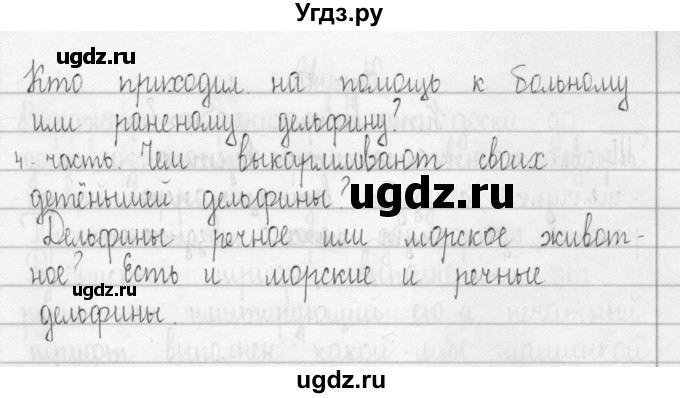 Угдз.ру
ugdz.ru
Кто приходил на помощь к больному
или раненому дельфину?
4 часть. Чем выкармливают своих
детёнышей дельфины?
ugdz.ru
Дельфины речное или морское живот-
ugdz.ru
ное? Есть и морские и речные
дельфины.
ugdz.ru